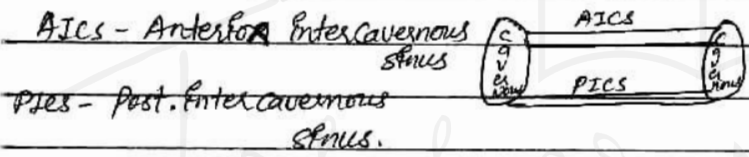 AICS - Anterior Intercavernous
sinus
PICS - Post. Intercavernous
sinus.
Cavernous
AICS
PICS
Cavernous